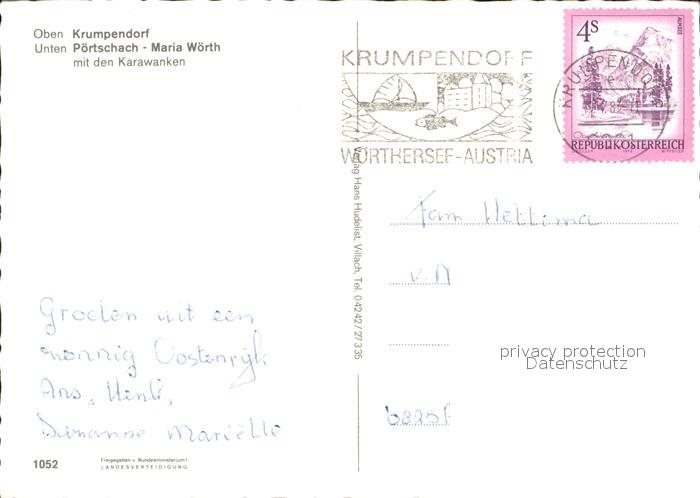 Oben Krumpendorf
Unten Pörtschach - Maria Wörth
mit den Karawanken
KRUMPENDORF
WÖRTHERSEE-AUSTRIA
KRUMPENDO
4S
ALMSEE
REPUBLIK ÖSTERREICH
Verlag Hans Hudelist, Villach, Tel. 04242/27335
Fam Hettima
v.d
privacy protection
Datenschutz
Groeten uit een
zonnig Oostenrijk
Ans, Henk,
Suzanne Mariëlle
1052
Freigegeben v. Bundesministerium f.
LANDESVERTEIDIGUNG